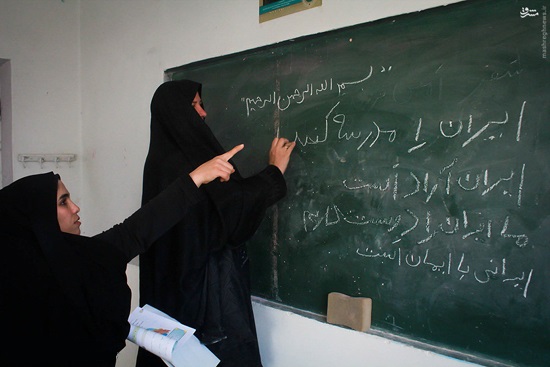 "بسم الله الرحمن الرحیم"
ایران را مدرسه کنید
ایران آزاد است
ما ایران را دوست داریم
ایرانی با ایمان است
مشرق
mashreghnews.ir